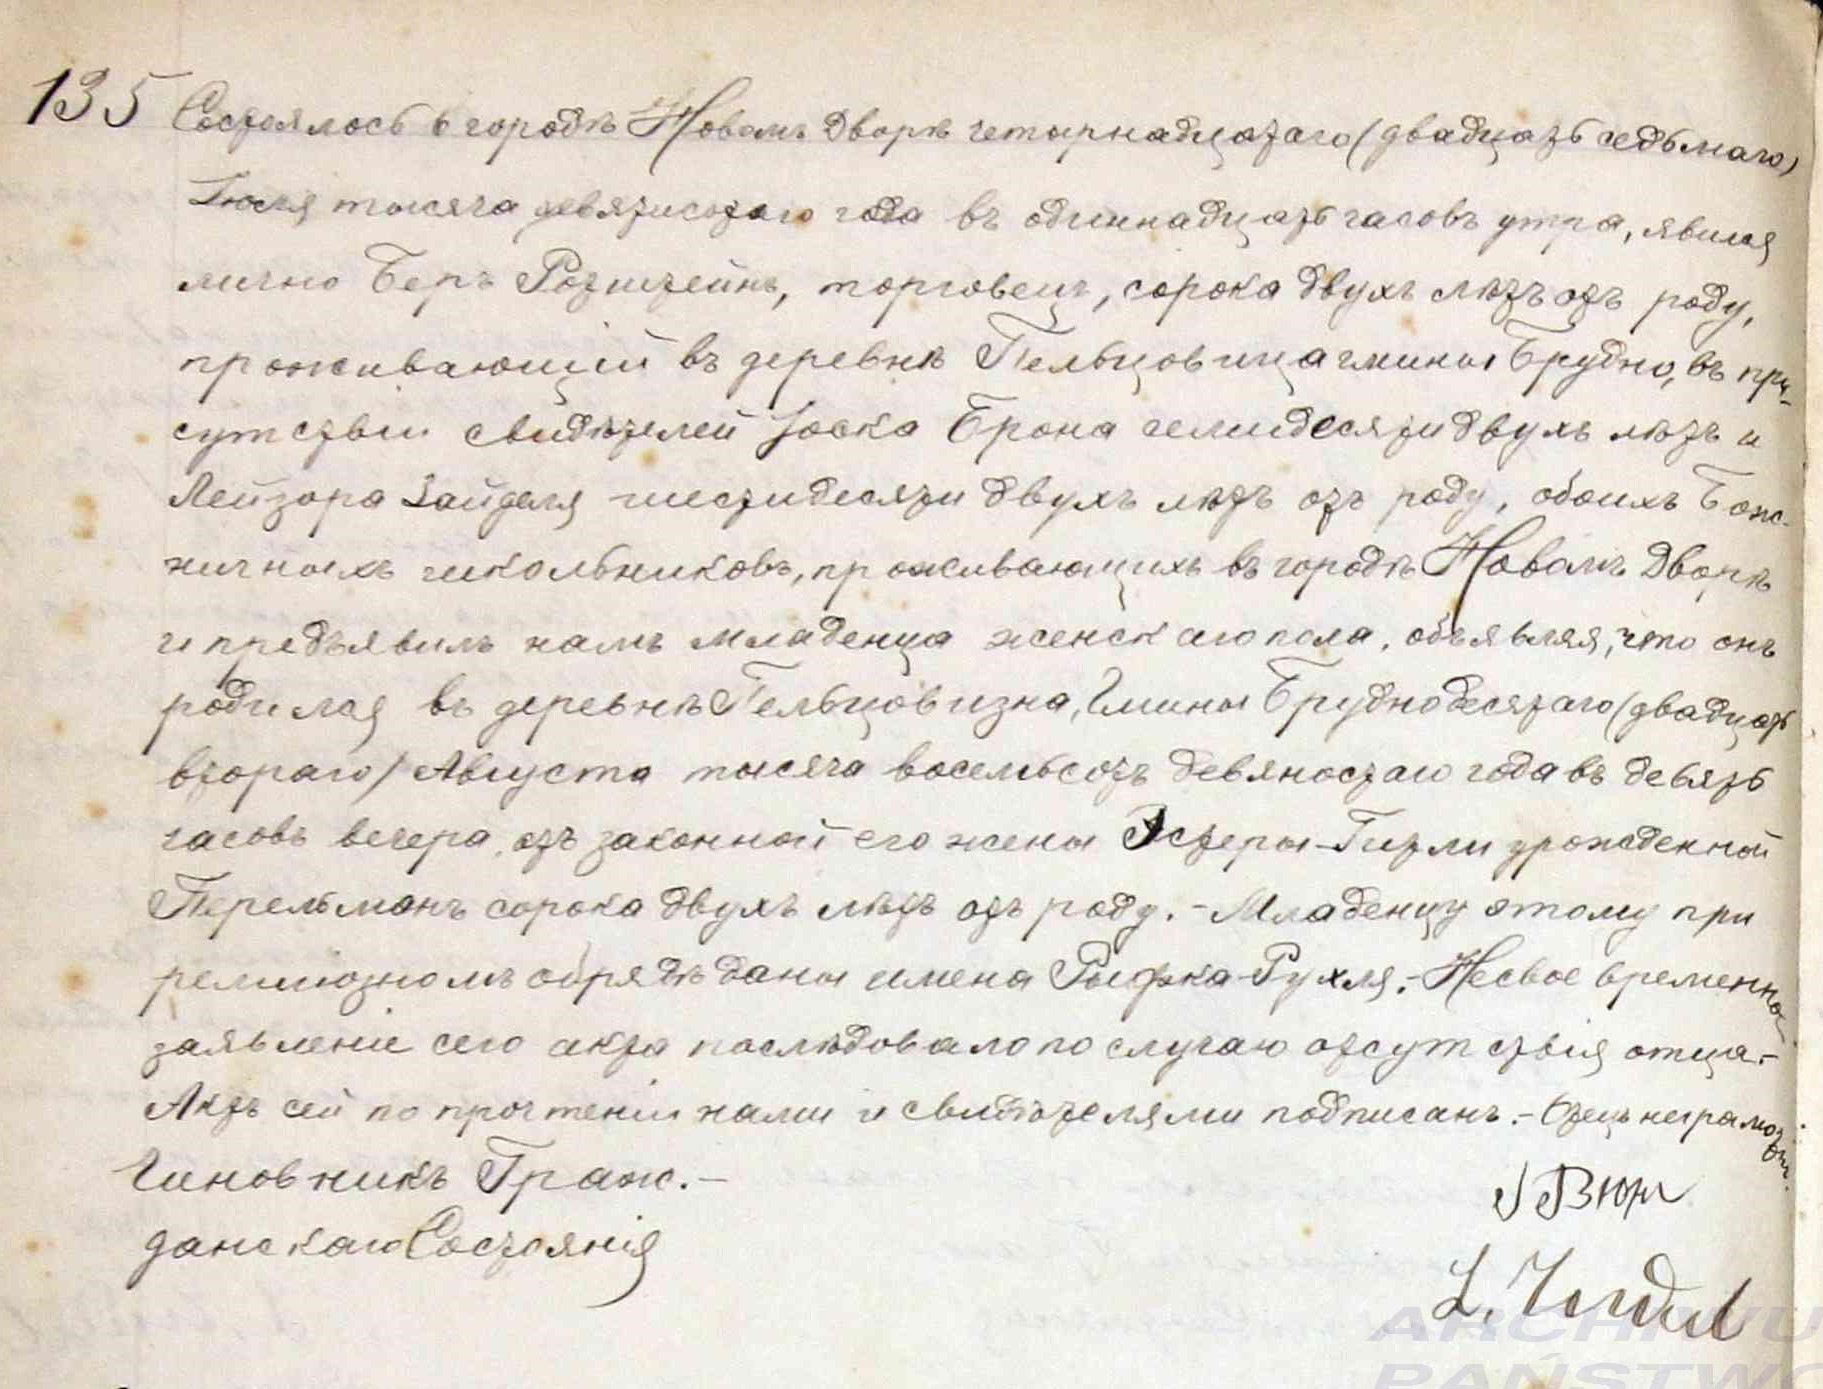 135 Состоялось в городѣ Новомъ Дворѣ четырнадцатаго (двадцать седьмаго)
Іюля тысяча девятисотаго года въ одиннадцать часовъ утра, явился
лично Беръ Розштейнъ, торговецъ, сорока двухъ лѣтъ отъ роду,
проживающій въ деревнѣ Пельцовица гмины Брудно, въ при-
сутствіи свидѣтелей Іоска Брона семидесяти двухъ лѣтъ и
Лейзора Зайделя шестидесяти двухъ лѣтъ отъ роду, обоихъ Бож-
ничныхъ школьниковъ, проживающихъ въ городѣ Новомъ Дворѣ
и предъявилъ намъ младенца женскаго пола, объявляя, что онъ
родился въ деревнѣ Пельцовизна, Гмины Брудно десятаго (двадцать
втораго) Августа тысяча восемьсотъ девяностаго года въ девять
часовъ вечера, отъ законной его жены Эстеры-Гитли урожденной
Перельманъ сорока двухъ лѣтъ отъ роду. - Младенцу этому при
религіозномъ обрядѣ даны имена Рыфка-Рухля. - Несвоевременное
заявленіе сего акта послѣдовало по случаю отсутствія отца. -
Актъ сей по прочтеніи нами и свидѣтелями подписанъ. - Отецъ неграмотный.
Чиновникъ Граж. -
данскаго Состоянія